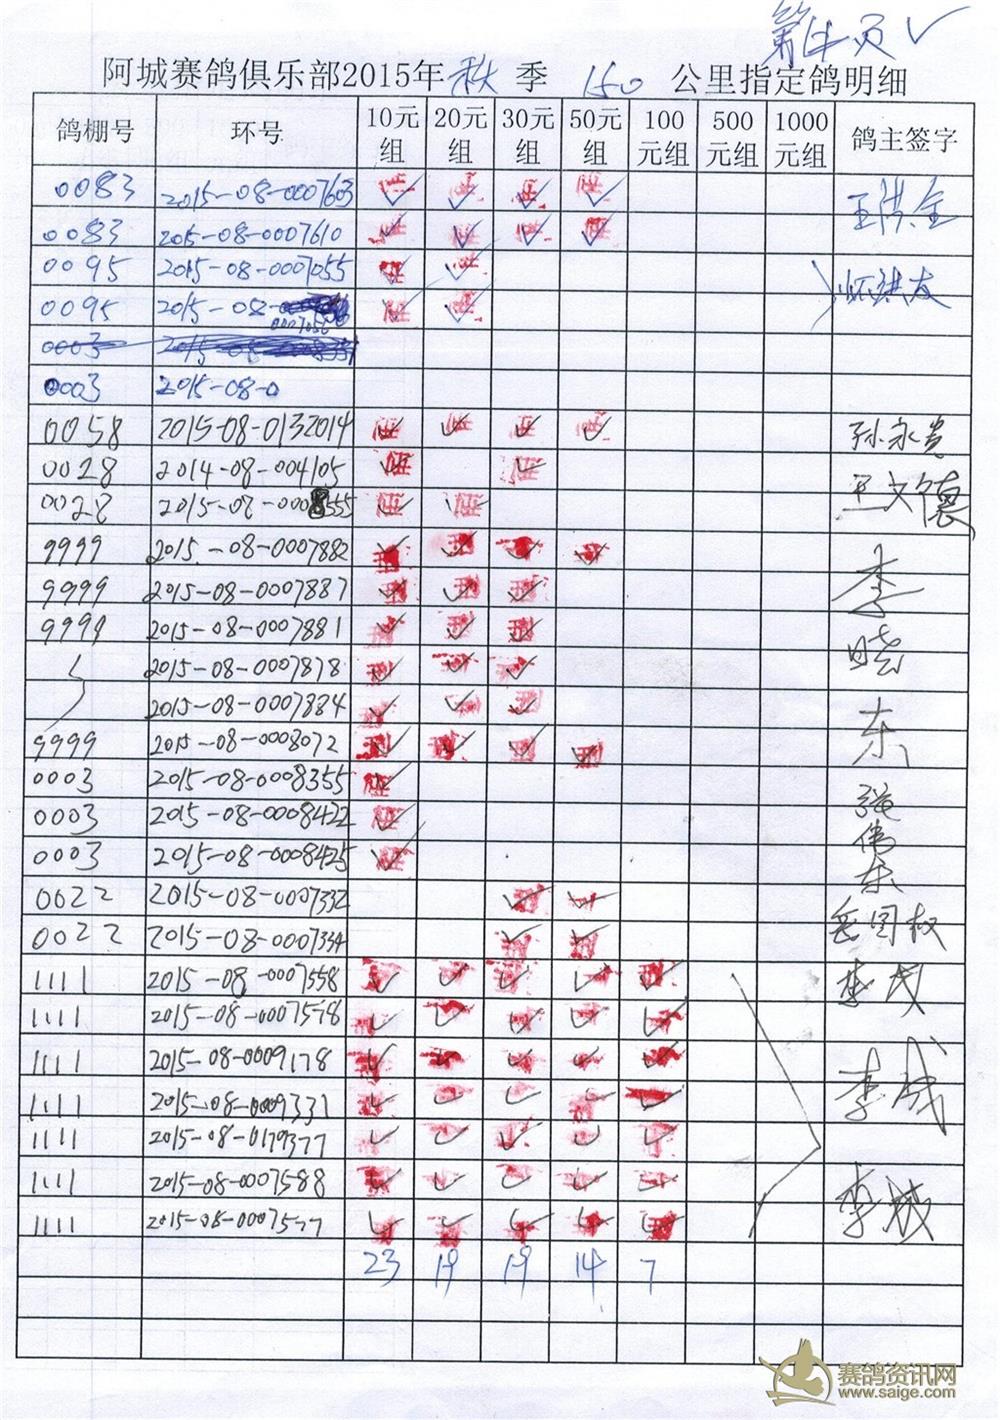 第4页✓
阿城赛鸽俱乐部2015年秋季 150 公里指定鸽明细
鸽棚号 环号 10元组 20元组 30元组 50元组 100元组 500元组 1000元组 鸽主签字
0083 2015-08-0007603 ✓ ✓ ✓ ✓ 王洪全
0083 2015-08-0007610 ✓ ✓ ✓ ✓
0095 2015-08-0007055 ✓ ✓
0095 2015-08-0007056 ✓ ✓
0003
0003 2015-08-0
0058 2015-08-0132014 ✓ ✓ ✓ ✓ 孙永贵
0028 2014-08-004105 ✓ ✓ 王文德
0028 2015-08-0008555
9999 2015-08-0007882 ✓ ✓ ✓ ✓ 李
9999 2015-08-0007887 ✓ ✓ ✓
9999 2015-08-0007881 ✓ ✓ ✓ 晓
2015-08-0007878 ✓ ✓ ✓
2015-08-0007884 ✓ ✓ ✓ 东
9999 2015-08-0008072 ✓ ✓ ✓ ✓
0003 2015-08-0008355 ✓ 张
0003 2015-08-0008422 ✓ 伟
0003 2015-08-0008425 ✓ 东
0022 2015-08-0007332 ✓ ✓
0022 2015-08-0007334 ✓ ✓ 岳国权
1111 2015-08-0007558 ✓ ✓ ✓ ✓ ✓ 李成
1111 2015-08-0007578 ✓ ✓ ✓ ✓ ✓
1111 2015-08-0009178 ✓ ✓ ✓ ✓ ✓ 李成
1111 2015-08-0009331 ✓ ✓ ✓ ✓ ✓
1111 2015-08-0179377 ✓ ✓ ✓ ✓ ✓
1111 2015-08-0007588 ✓ ✓ ✓ ✓ ✓ 李成
1111 2015-08-0007577 ✓ ✓ ✓ ✓ ✓
23 19 19 14 7
赛鸽资讯网
www.saige.com